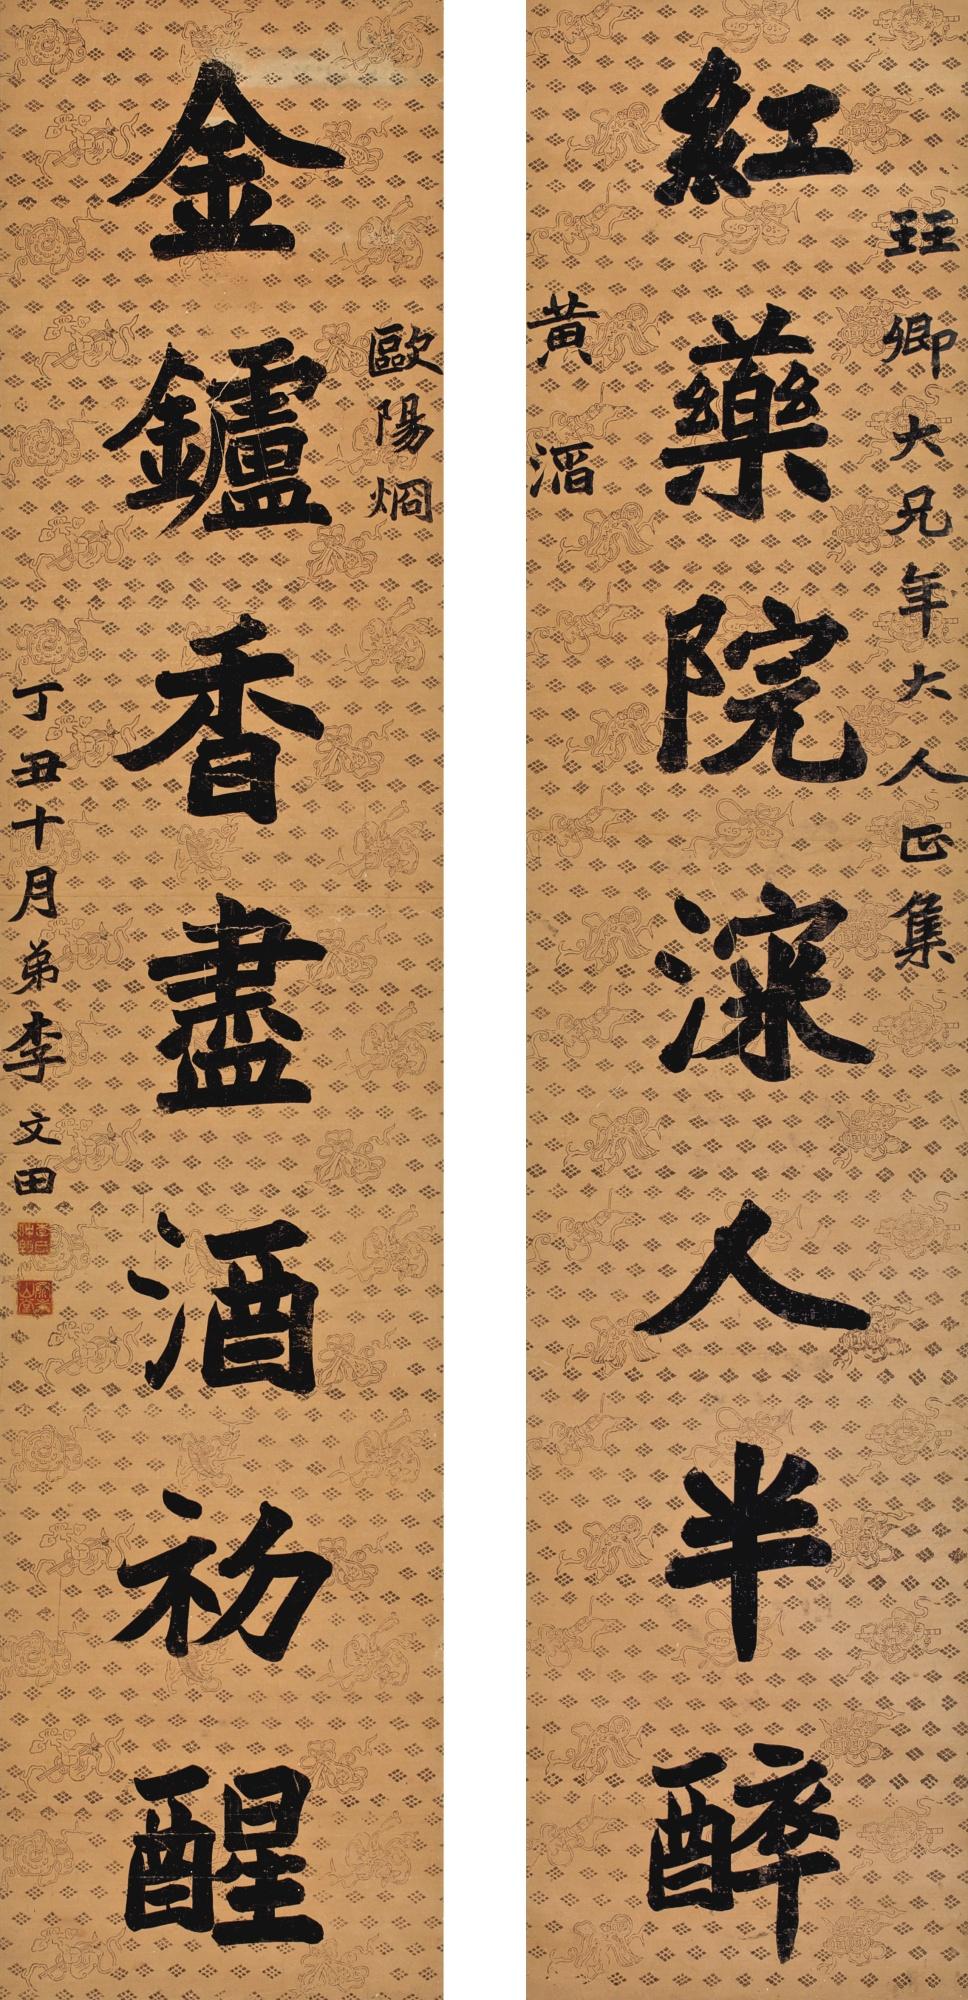 玨卿大兄年大人正集
紅藥院深人半醉
黃滔
歐陽烱
金鑪香盡酒初醒
丁丑十月弟李文田